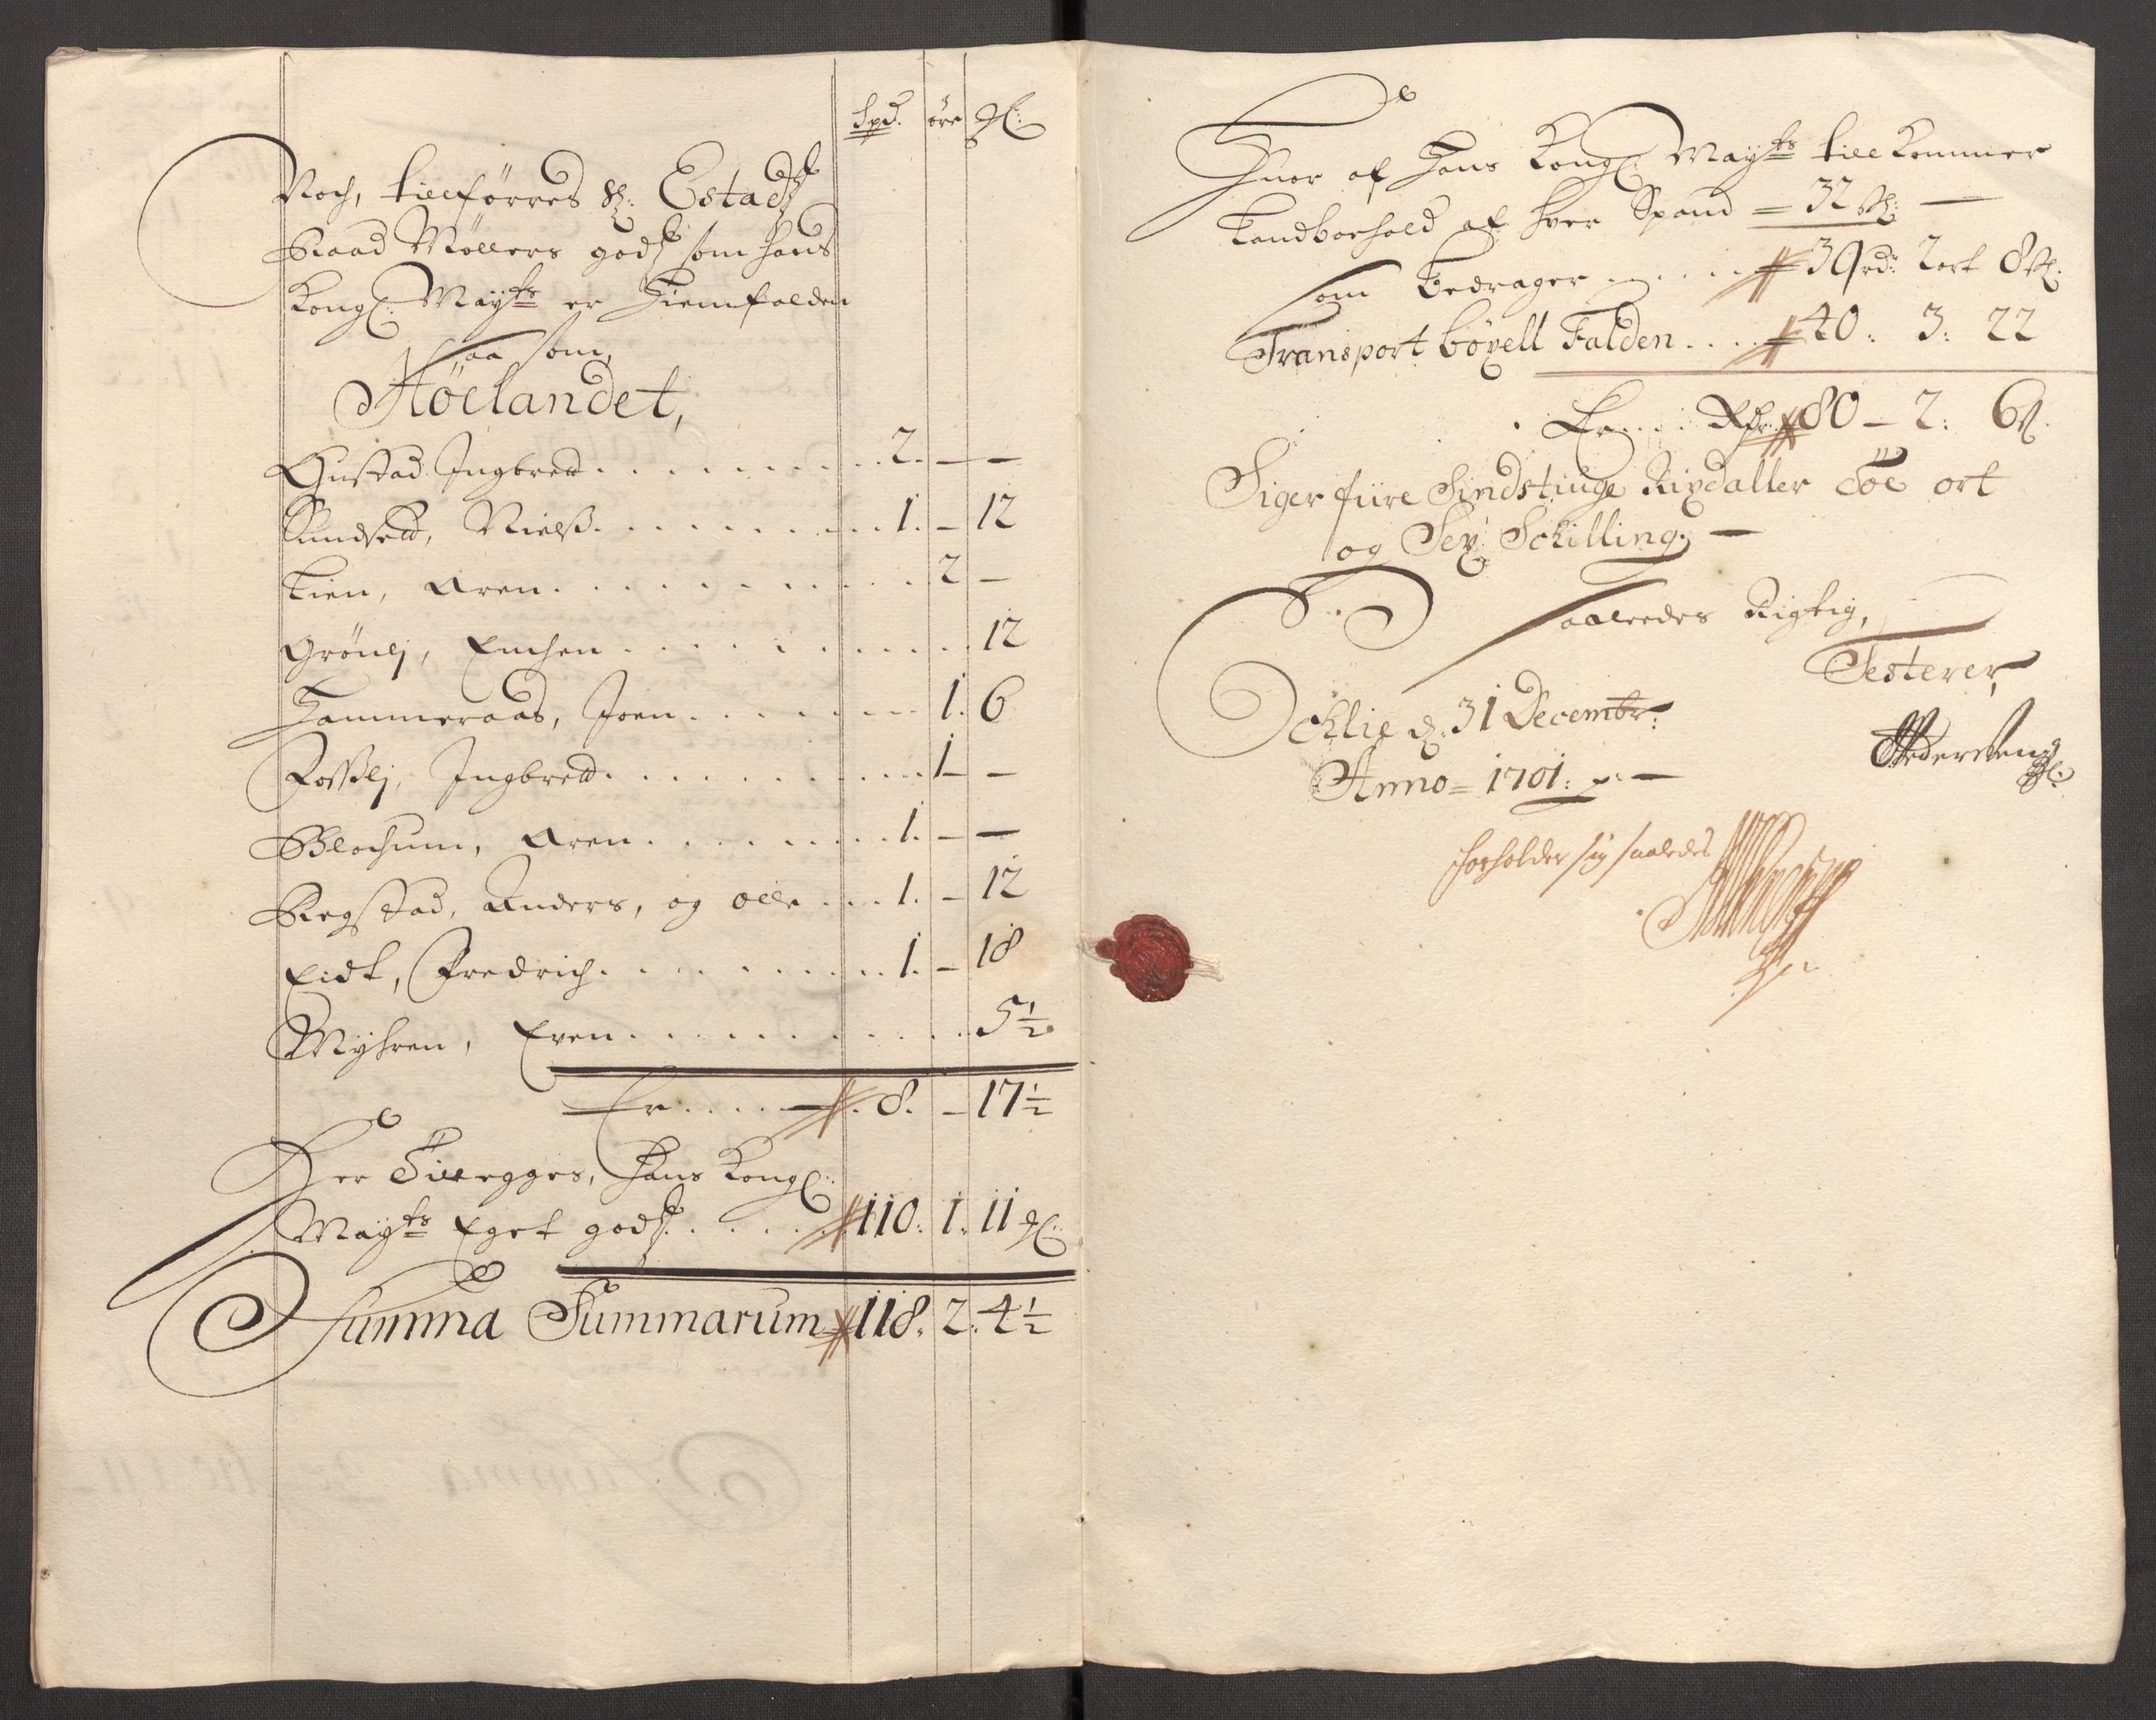 Spd. öre Mk:
Noch, tillförres Sl: Estads
Raad Möllers gods som hans
Kongl: Mayts er hiemfalden
saa som,
Höelandet,
Gustad Ingbret . . . . . . . . . . 2. — —
Sundset, Nielss . . . . . . . . . 1. — 12
Lien, Aren . . . . . . . . . . 2 —
Grönlj, Enchen . . . . . . . . . . 12
Hammeraas, Joen . . . . . . . 1. 6
Rosslj, Ingbret . . . . . . . . . . 1 —
Blochum, Aren . . . . . . . . 1. — —
Regstad, Anders, og Olle . . . 1. — 12
Eidt, Fredrich . . . . . . . . . . 1. — 18
Myhren, Even . . . . . . . . . . 5½
Er . . . . 8. — 17½
Her Tillegges, Hans Kongl:
Mayts Eget gods . . . . 110. 1. 11 Mk:
Summa Summarum 118. 2. 4½
Huor af Hans Kongl: Mayts tillkommer
Landboehold af hver Spand = 32 sk: —
som bedrager . . . . 39 rdr 2 ort 8 sk.
Transport böxell Falden . . . . 40. 3: 22
Er . . . Rdr. 80 — 2: 6 sk.
Siger fiire Sindstiuge Rixdaller Toe ort
og Sex Schilling. —
Saaleedes Rigtig,
Testerer,
Ocklie d. 31 Decembr:
Anno = 1701:
forholder sig saaledes